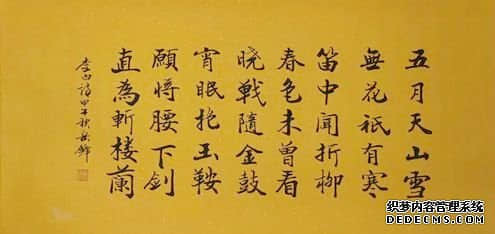 五月天山雪
無花祇有寒
笛中聞折柳
春色未曾看
晓戰隨金鼓
宵眠抱玉鞍
願將腰下剑
直為斬楼蘭
李白詩甲午秋
织梦内容管理系统
DEDECMS.COM